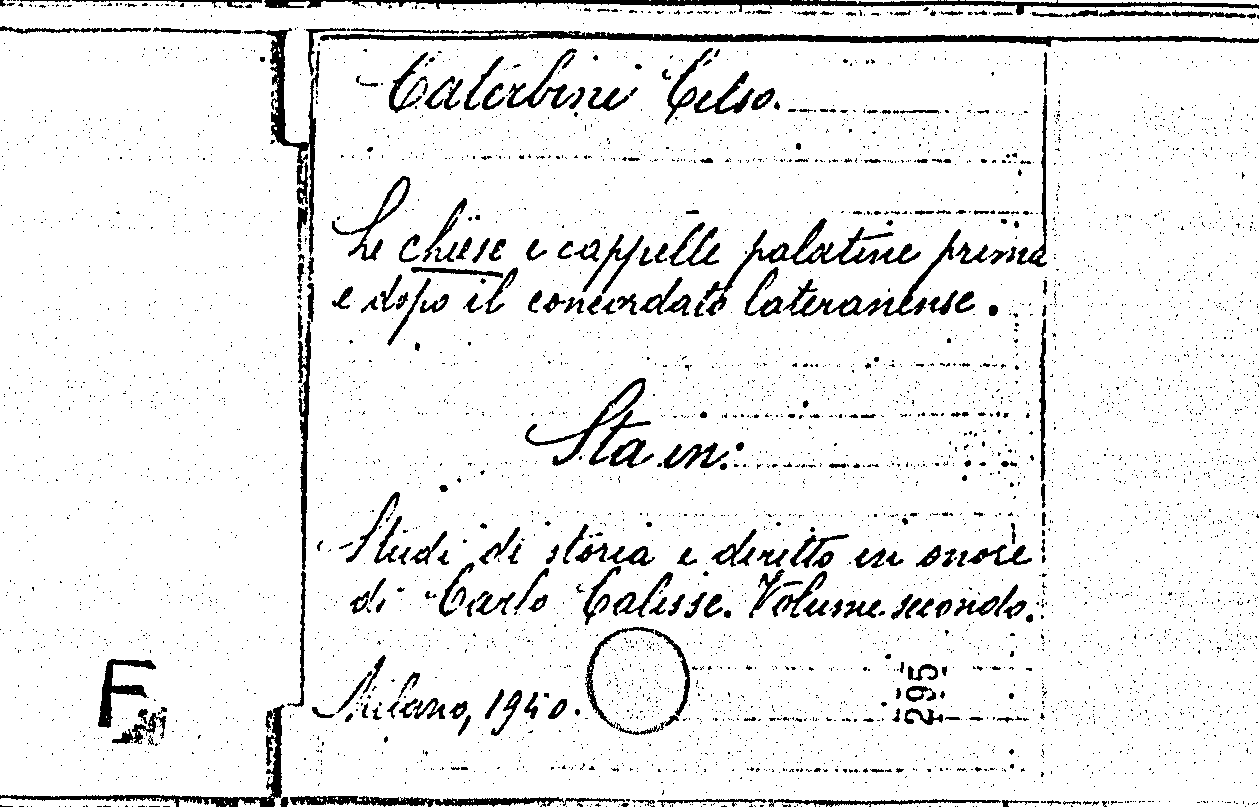 Caterbini Celso.
Le chiese e cappelle palatine prima
e dopo il concordato lateranense.
Sta in:
Studi di storia e diritto in onore
di Carlo Calisse. Volume secondo.
Milano, 1940.
295
F